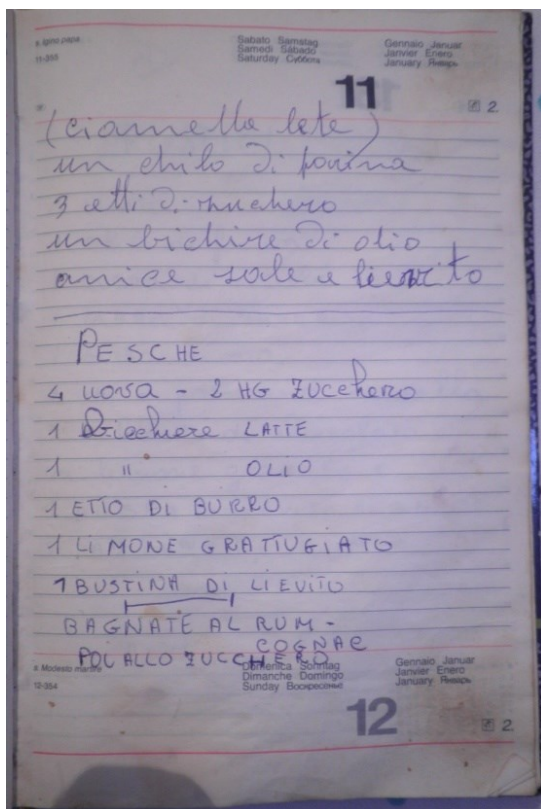 s. Igino papa
11-355
Sabato Samstag
Samedi Sábado
Saturday Суббота
Gennaio Januar
Janvier Enero
January Январь
11
2
(ciamelle lete)
un chilo di farina
3 etti di zuchero
un bichire di olio
anice sale e lievito
PESCHE
4 uova - 2 HG Zucchero
1 Bicchiere LATTE
1 " OLIO
1 ETTO DI BURRO
1 LIMONE GRATTUGIATO
1 BUSTINA DI LIEVITO
BAGNATE AL RUM -
COGNAC
POI ALLO ZUCCHERO
s. Modesto martire
12-354
Domenica Sonntag
Dimanche Domingo
Sunday Воскресенье
Gennaio Januar
Janvier Enero
January Январь
12
2